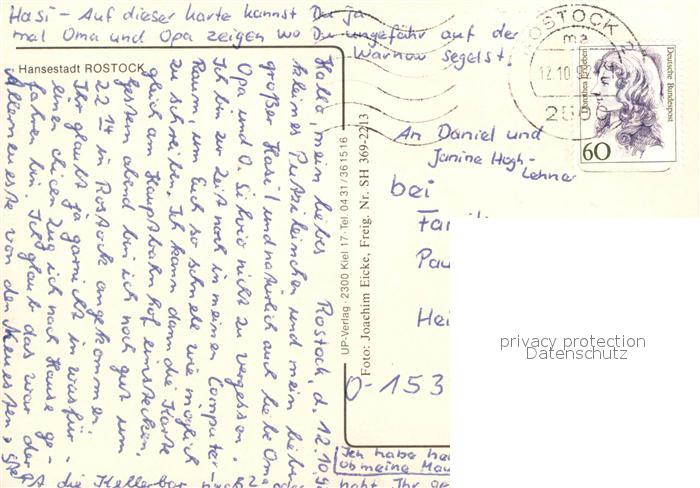 Hasi - Auf dieser Karte kannst Du ja
mal Oma und Opa zeigen wo Du ungefähr auf der
Warnow segelst.
Hansestadt ROSTOCK
Rostock, d. 12.10.
Hallo, mein liebes
kleines Putzileinchen und mein lieber
großer Hasi! und natürlich auch liebe Oma
Opa und O. Silvio nicht zu vergessen.
Ich bin zur Zeit noch in meinen Computer-
Raum, um Euch so schnell wie möglich
zu schreiben. Ich kann dann die Karte
gleich am Hauptbahnhof einstecken.
Gestern abend bin ich noch gut um
22 14 in Rostock angekommen.
Ihr glaubt ja garnicht in was für
einen Zug ich nach Hause ge-
fahren bin. Ich glaub das war der
Allerneueste von den Neuesten
ist die Kellerbar
UP-Verlag · 2300 Kiel 17 · Tel. 0431/361516
Foto: Joachim Eicke, Freig. Nr. SH 369-2213
ROSTOCK
ma
12.10.92
2500
Deutsche Bundespost
60
An Daniel und
Janine Hugh-
Lehner
bei
Fami
Pau
Hei
O-153
Ich habe
ob meine Mau
habt Ihr
privacy protection
Datenschutz